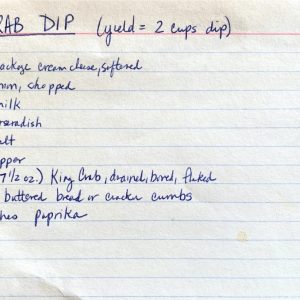 RAB DIP (yield = 2 cups dip)
ackage cream cheese, softened
nion, chopped
milk
orseradish
alt
epper
7 1/2 oz.) King Crab, drained, boned, flaked
buttered bread or cracker crumbs
shes paprika